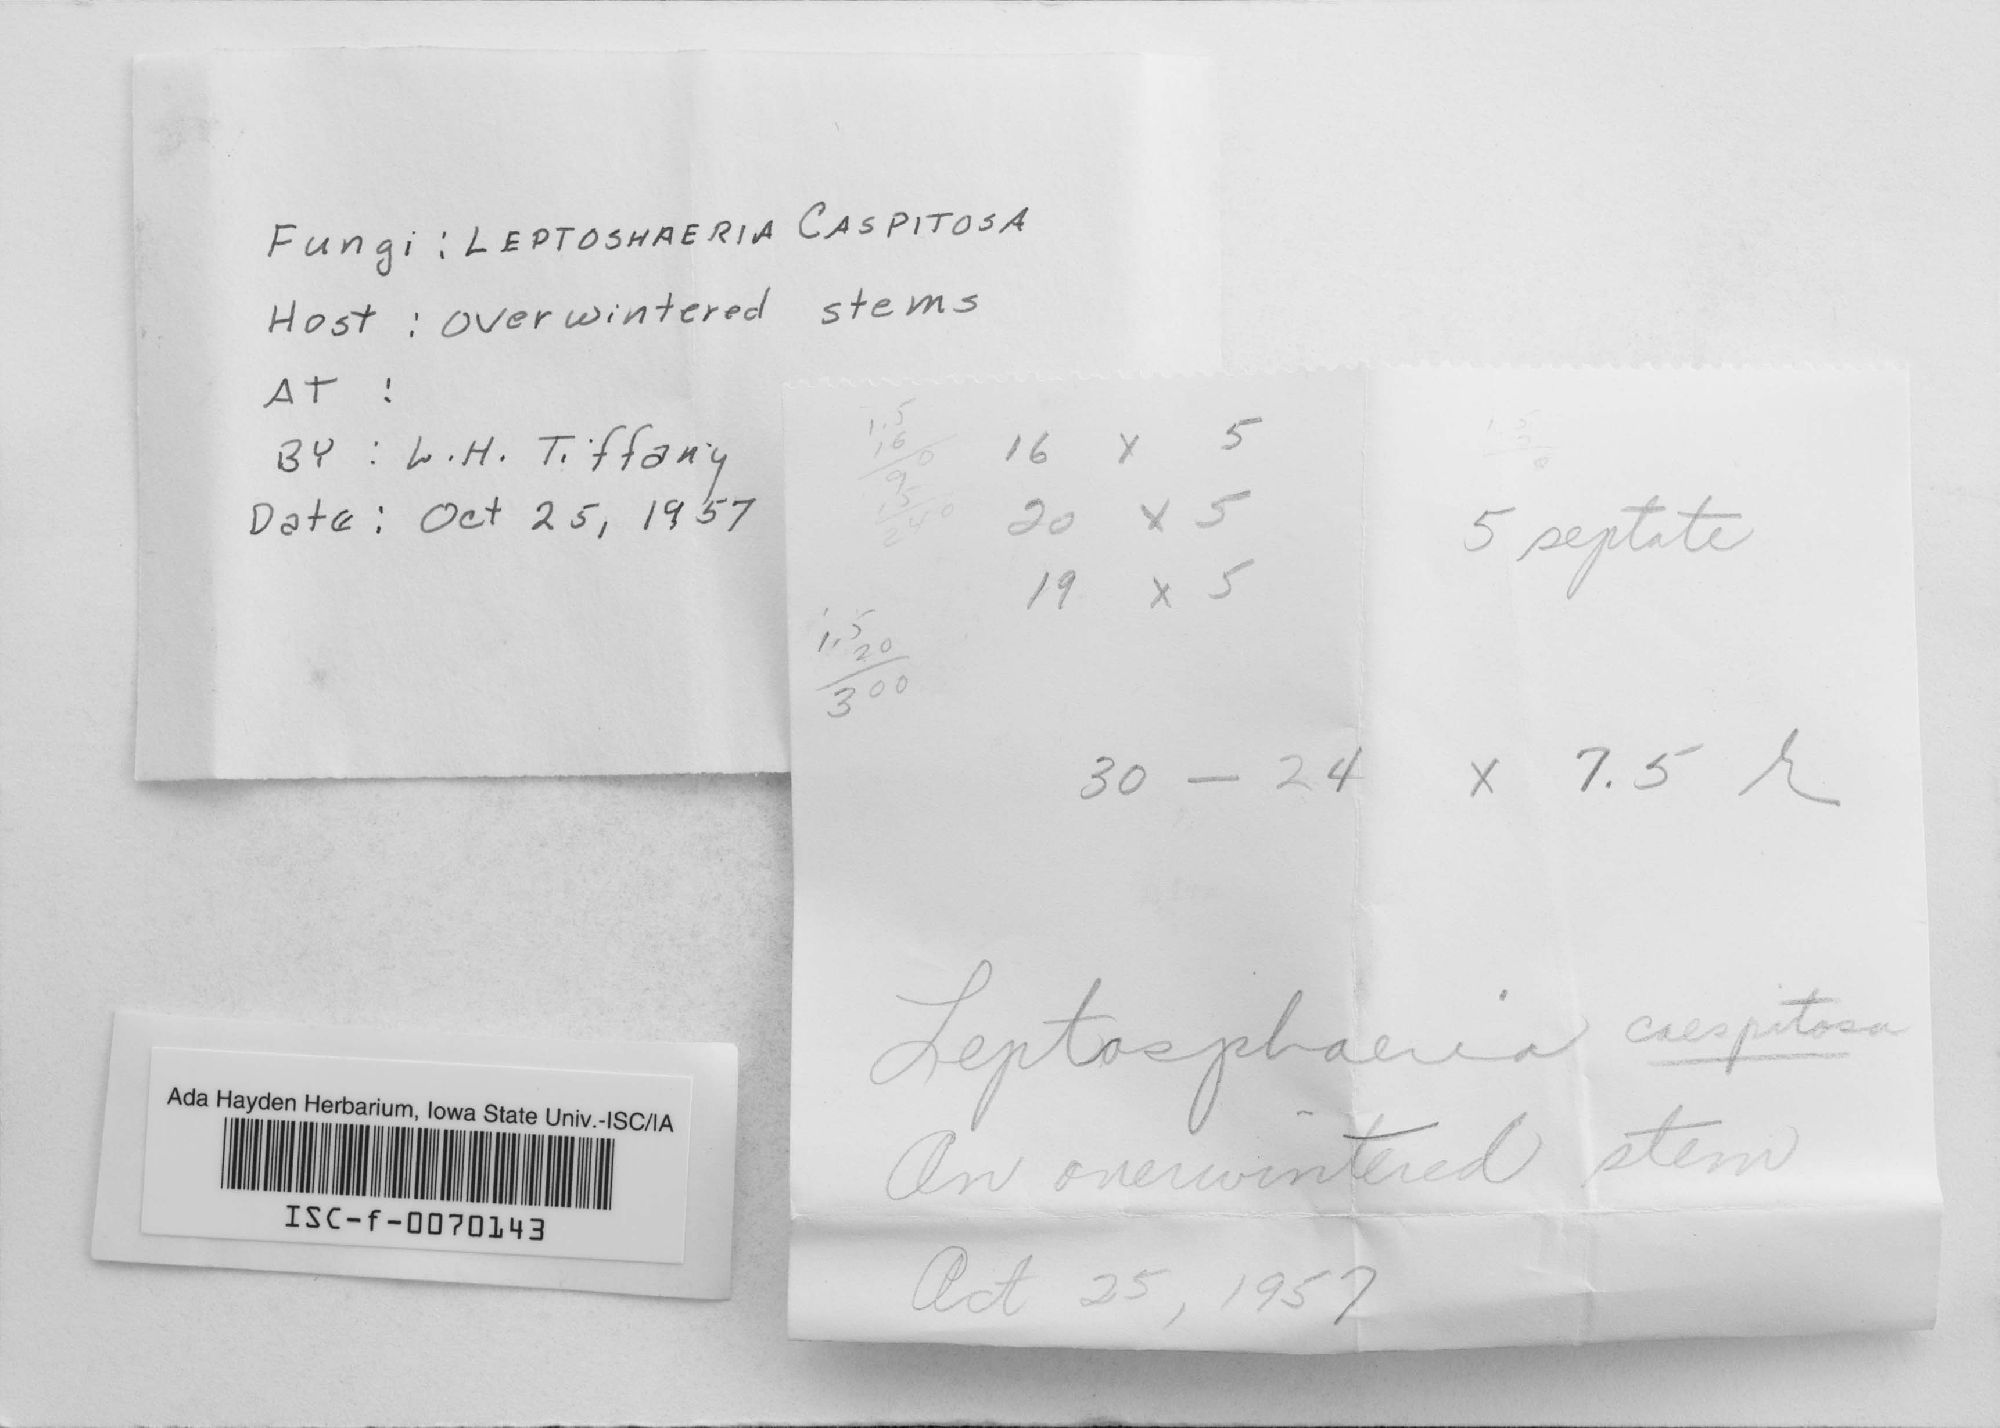 Fungi: LEPTOSHAERIA CASPITOSA
Host: overwintered stems
AT :
BY : L.H. Tiffany
Date: Oct 25, 1957
1.5
16
90
15
240
16 x 5
20 x 5
19 x 5
5 septate
1.5
20
300
30 — 24 x 7.5
Leptosphaeria caespitosa
On overwintered stem
Oct 25, 1957
Ada Hayden Herbarium, Iowa State Univ.-ISC/IA
ISC-f-0070143